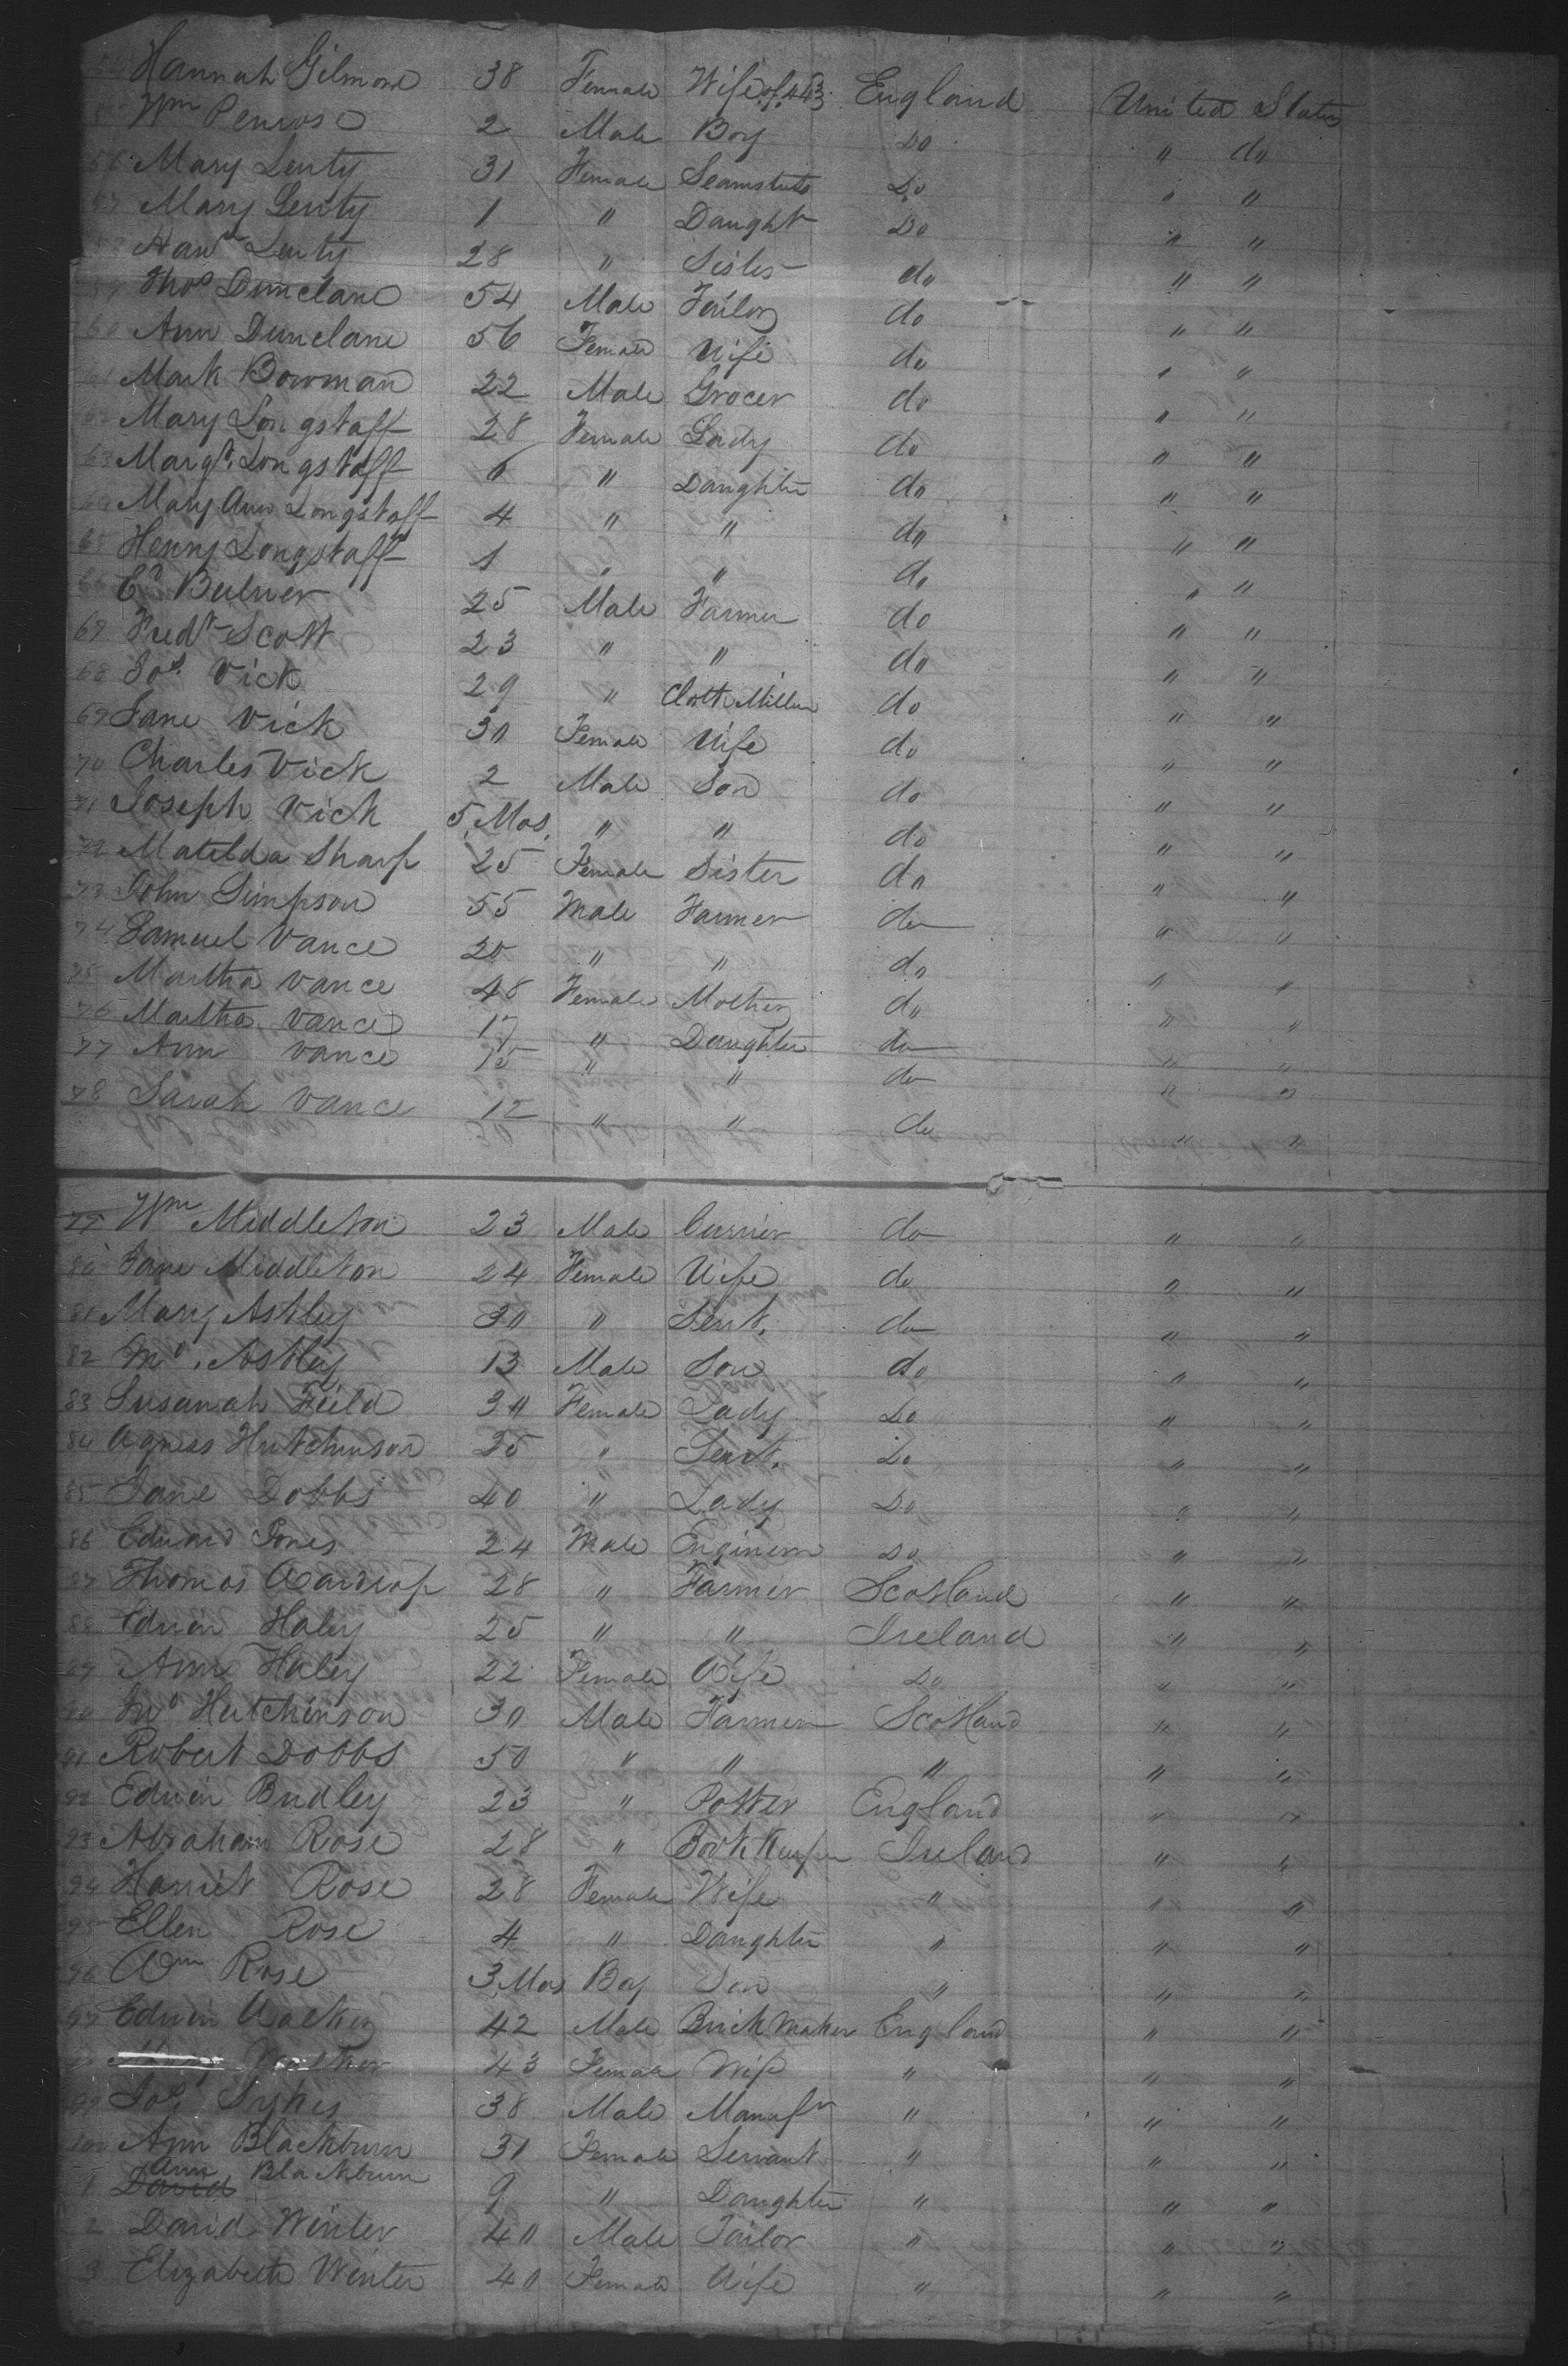 Hannah Gilmore 38 Female Wife of 453 England United States
55 Wm Penrose 2 Male Boy Do " do
56 Mary Lenty 31 Female Seamstress Do " "
57 Mary Lenty 1 " Daught Do " "
58 Lenty 28 " Sister do " "
59 Thos Dunclane 54 Male Tailor do " "
60 Ann Dunclane 56 Female Wife do " "
61 Mark Bowman 22 Male Grocer do " "
62 Mary Longstaff 28 Female Lady do " "
63 Margt. Longstaff 6 " Daughter do " "
64 Mary Ann Longstaff 4 " " do " "
65 Henry Longstaff 1 " " do " "
66 Bulmer 25 Male Farmer do " "
67 Fredk Scott 23 " " do " "
68 Jos. Vick 29 " Cloth Miller do " "
69 Jane Vick 30 Female Wife do " "
70 Charles Vick 2 Male Son do " "
71 Joseph Vick 5 Mos. " " do " "
72 Matilda Sharp 25 Female Sister do " "
73 John Simpson 55 Male Farmer do " "
74 Samuel Vance 20 " " do " "
75 Martha Vance 48 Female Mother do " "
76 Martha Vance 17 " Daughter do " "
77 Ann Vance 15 " " do " "
78 Sarah Vance 12 " " do " "
79 Wm Middleton 23 Male Currier do " "
80 Jane Middleton 24 Female Wife do " "
81 Mary Astley 30 " Servt. do " "
82 Jno. Astley 13 Male Son do " "
83 Susannah Feild 30 Female Lady Do " "
84 Agness Hutchinson 25 " Servt. Do " "
85 Jane Dobbs 40 " Lady Do " "
86 Edward Jones 24 Male Engineer Do " "
87 Thomas Wardrop 28 " Farmer Scotland " "
88 Edwin Haley 25 " " Ireland " "
89 Ann Haley 22 Female Wife Do " "
90 Jno Hutchinson 30 Male Farmer Scotland " "
91 Robert Dobbs 50 " " " " "
92 Edwin Budley 23 " Potter England " "
93 Abraham Rose 28 " Book Keeper Ireland " "
94 Harriet Rose 28 Female Wife " " "
95 Ellen Rose 4 " Daughter " " "
96 Wm Rose 3 Mos Boy Son " " "
97 Edwin Walker 42 Male Brick Maker England " "
98 Walker 43 Female Wife " " "
99 Jos. Sykes 38 Male Manufr " " "
100 Ann Blackburn 31 Female Servant " " "
1 David Ann Blackburn 9 " Daughter " " "
2 David Winter 40 Male Tailor " " "
3 Elizabeth Winter 40 Female Wife " " "